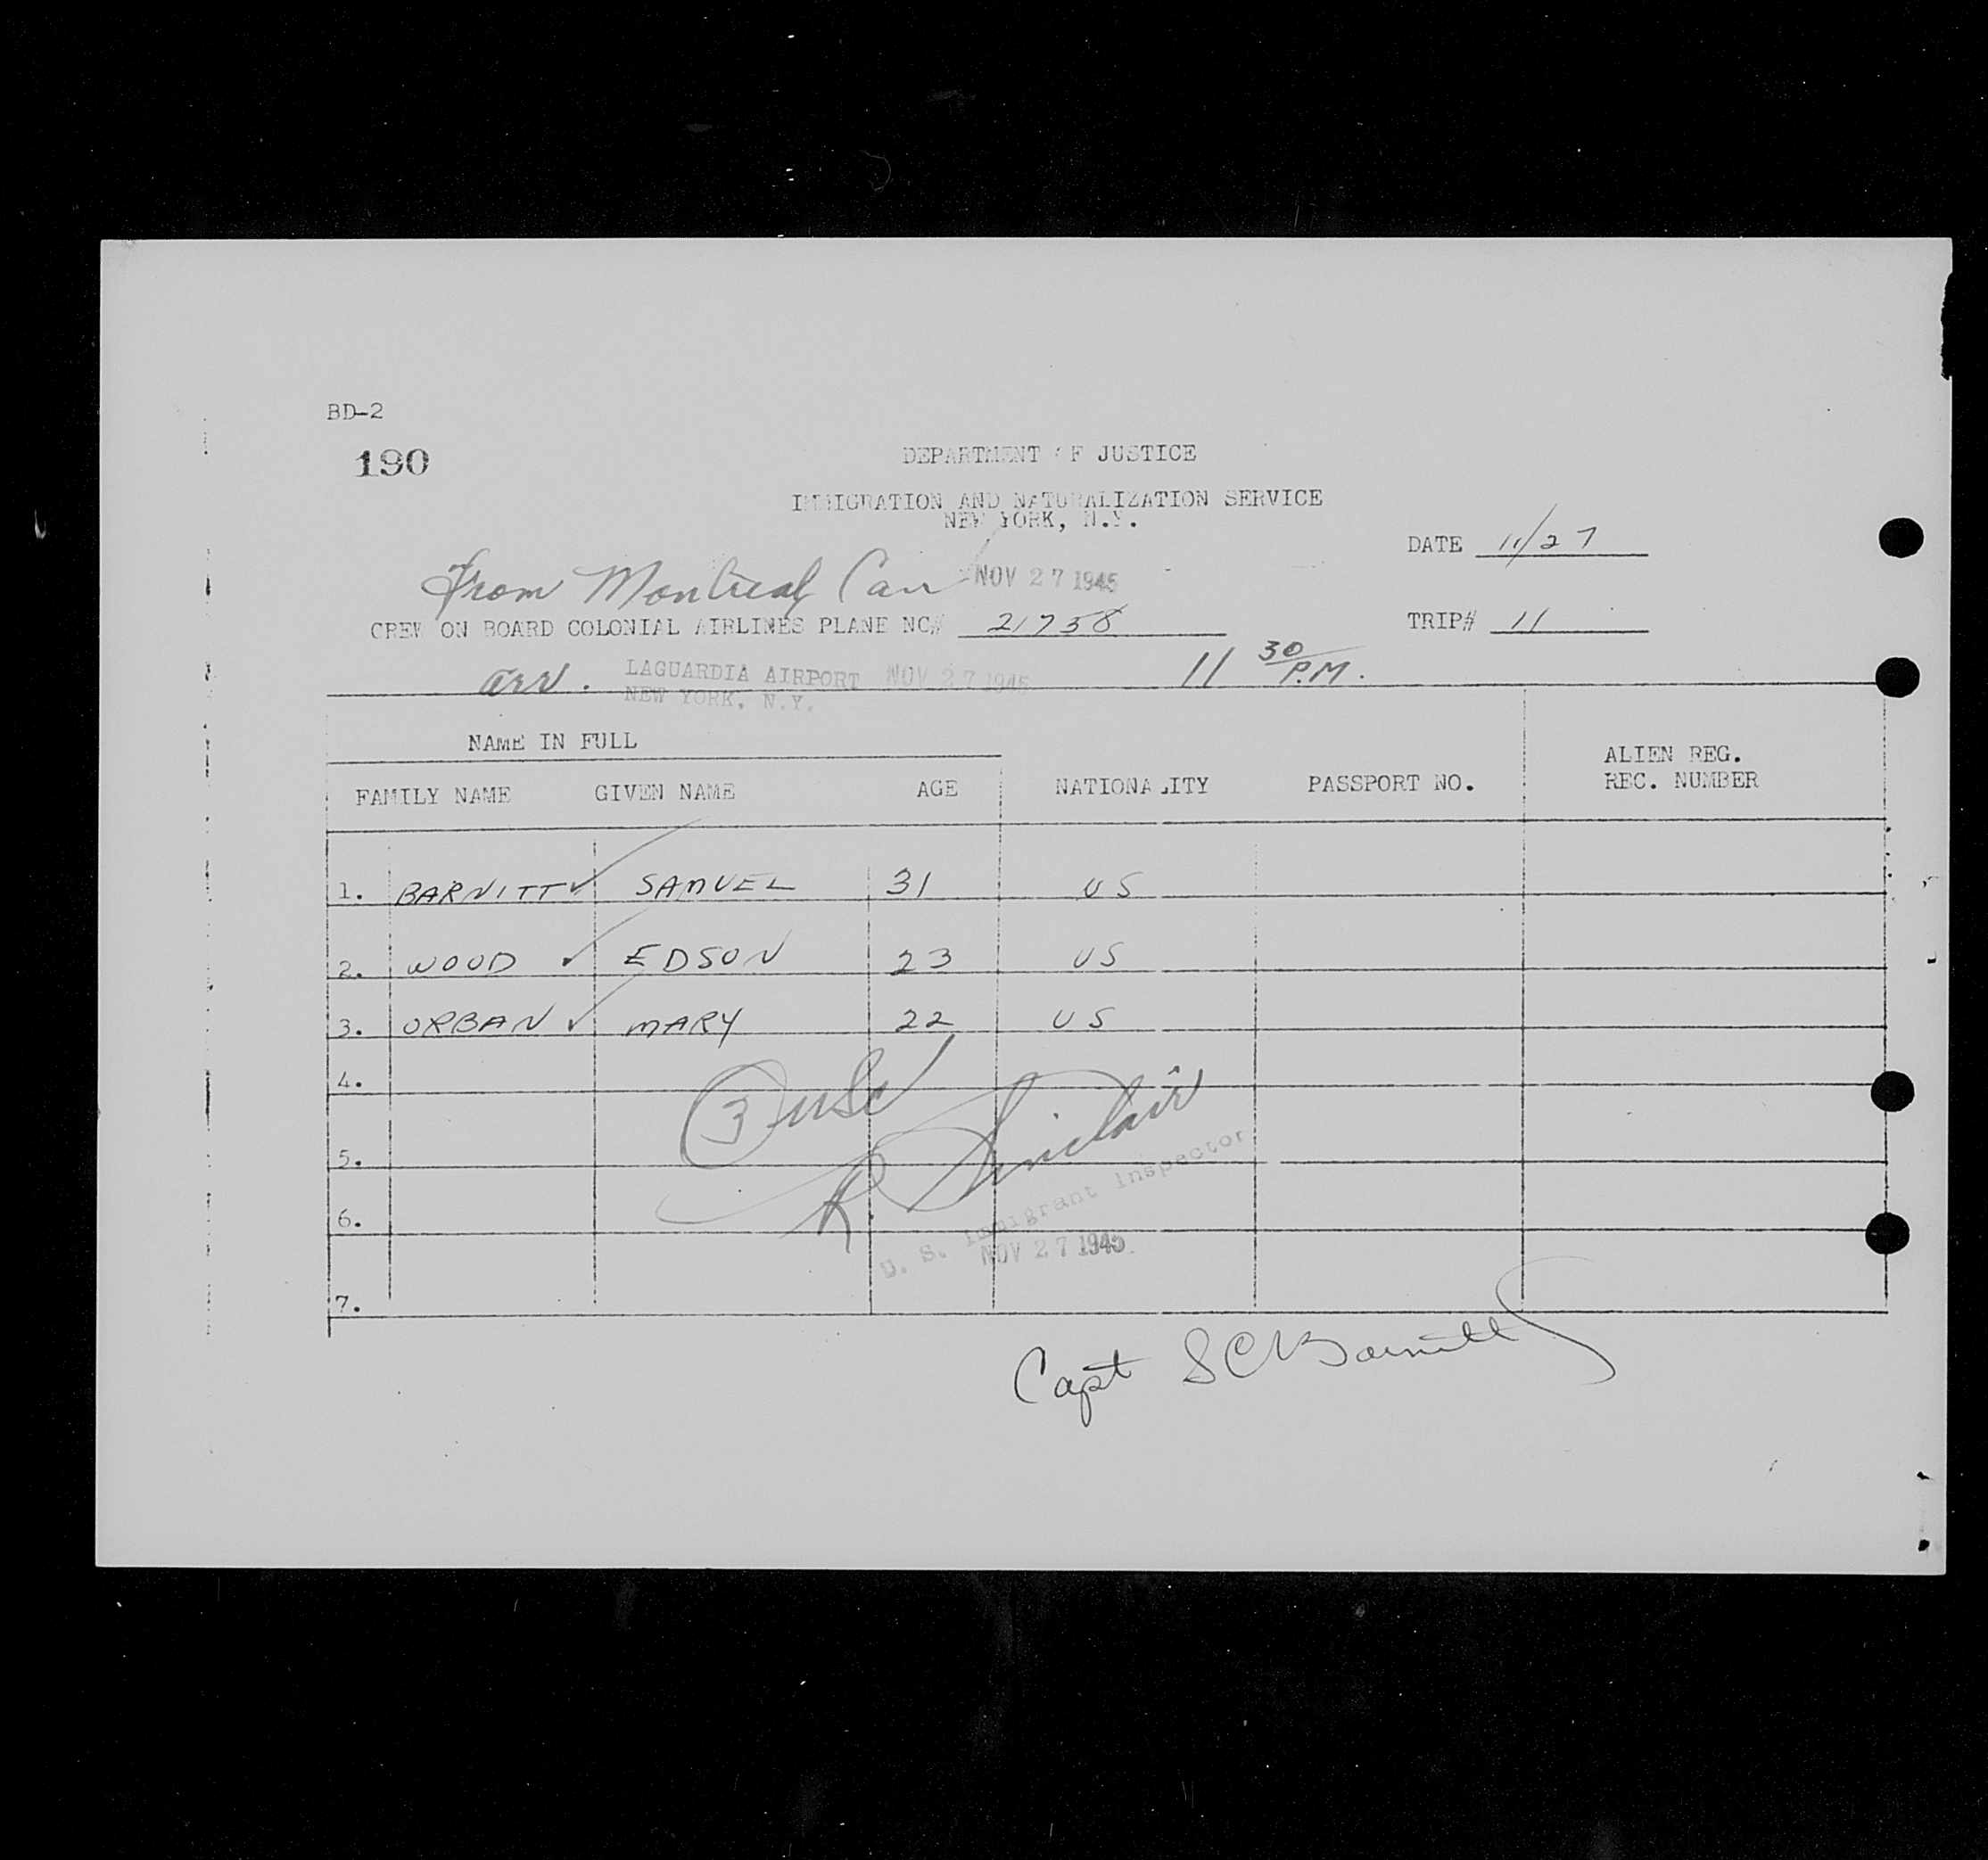 BD-2
190
DEPARTMENT OF JUSTICE
IMMIGRATION AND NATURALIZATION SERVICE
NEW YORK, N.Y.
DATE 11/27
From Montreal Can NOV 27 1945
CREW ON BOARD COLONIAL AIRLINES PLANE NC# 21758 TRIP# 11
arr. LAGUARDIA AIRPORT NOV 27 1945 11 30 P.M.
NEW YORK, N.Y.
NAME IN FULL
FAMILY NAME GIVEN NAME AGE NATIONALITY PASSPORT NO. ALIEN REG. REC. NUMBER
1. BARNITT SAMUEL 31 US
2. WOOD EDSON 23 US
3. ORBAN MARY 22 US
4.
3 USC
5.
R Sinclair
U. S. Immigrant Inspector
6.
NOV 27 1945
7.
Capt S C Barnitt